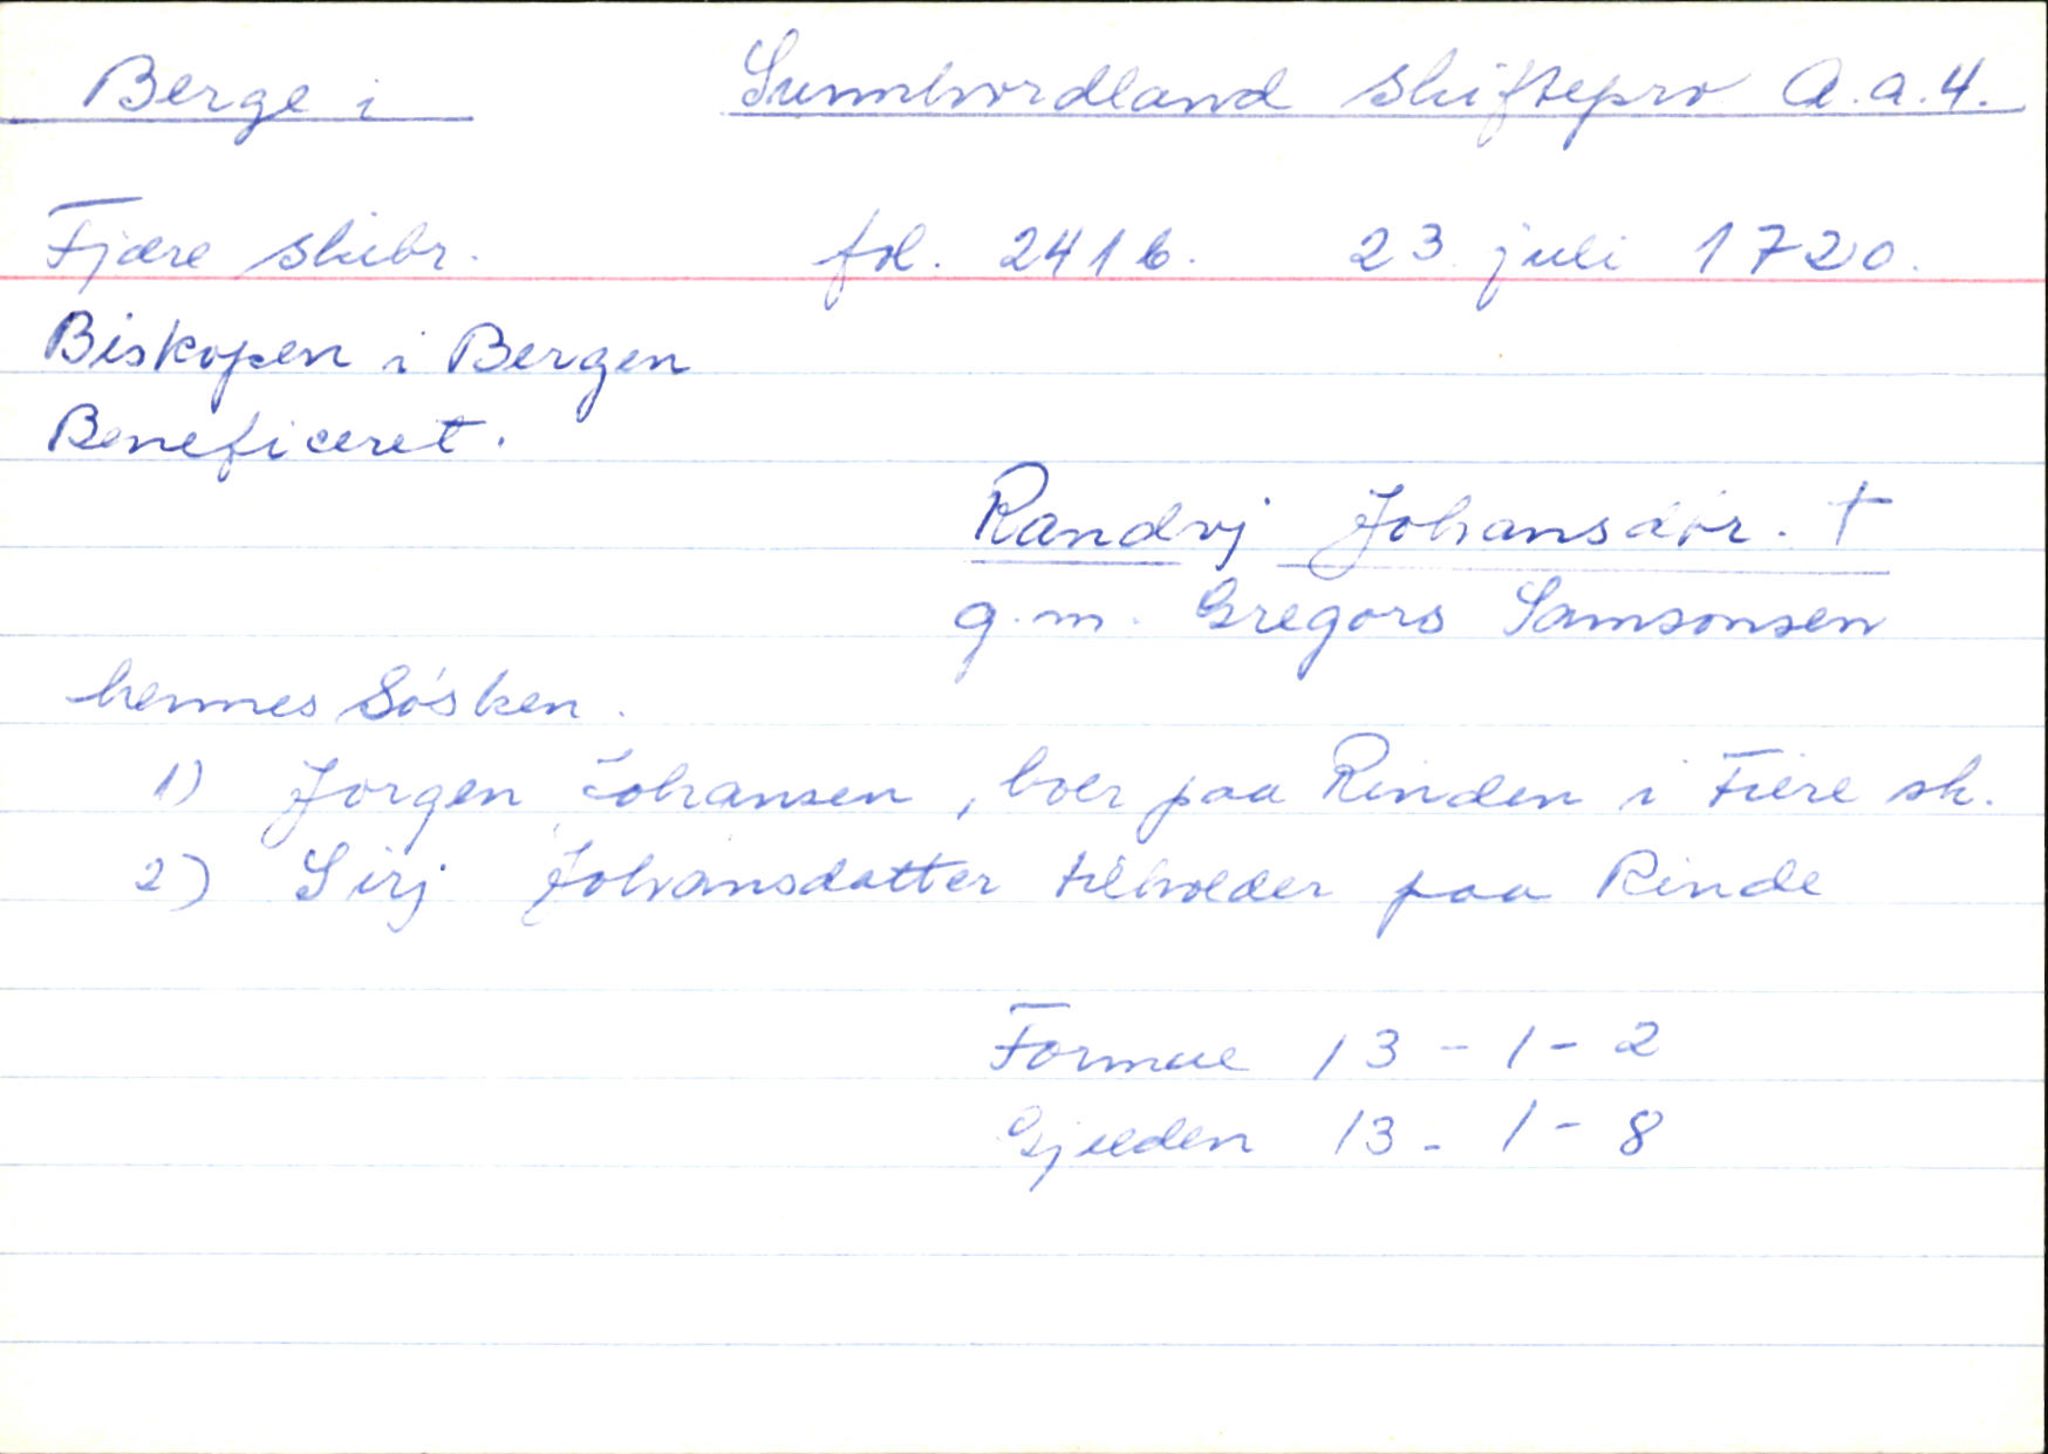 Berge i Sunnhordland skiftepro A.a.4.
Fjære skibr. fol. 241b. 23 juli 1720.
Biskopen i Bergen
Beneficeret.
Randvj Johansdtr. †
g.m. Gregors Samsonsen
hennes Søsken.
1) Jorgen Johansen, boer paa Rinden i Fiere sk.
2) Sirj Johansdatter tilholder paa Rinde
Formue 13-1-2
Gjelden 13-1-8